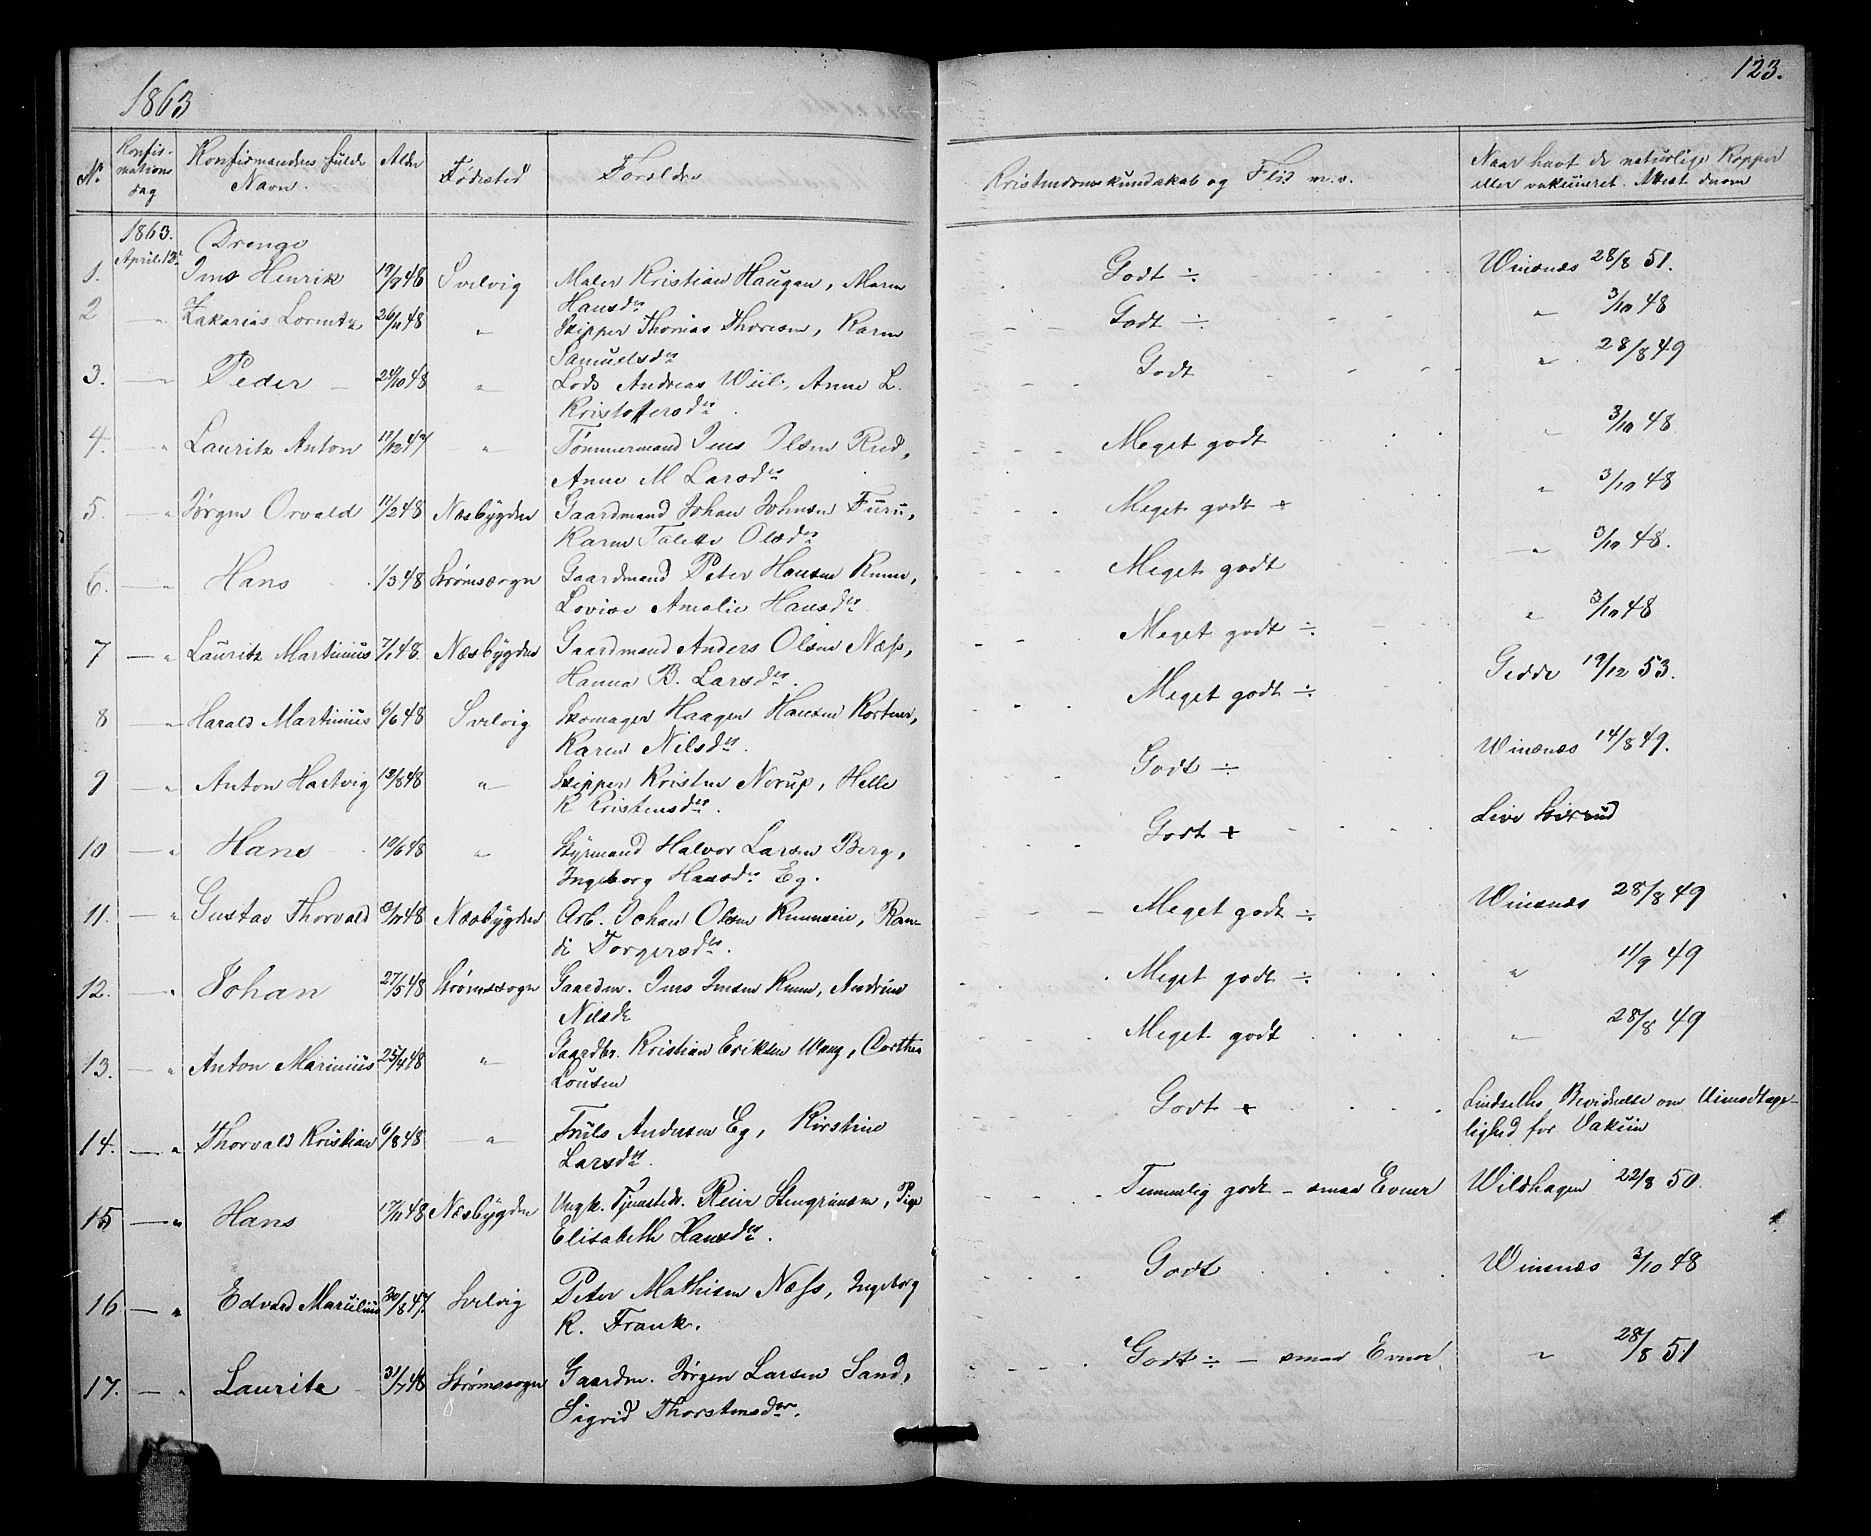 1863
123.
No. Konfirmations dag Konfirmandens fulde Navn. Alder Fødested Forældre Kristendomskundskab og Flid m.v. Naar havt de naturlige Kopper eller vakcineret. Attest derom
1863. Drenge
1. April 12. Jens Henrik 19/9 48 Svelvig Maler Kristian Haugan, Maren Godt ÷ Winsnes 28/8 51.
Hansdr
2 — „ Zakarias Lorentz 26/11 48 „ Skipper Thomas Thoresen, Karen Godt ÷ „ 3/10 48
Samuelsdr
3. — „ Peder — 24/10 48 „ Lods Andreas Wiil, Anne L. Godt „ 28/8 49
Kristoffersdr.
4. — „ Lauritz Anton 11/12 47 — „ Tømmermand Jens Olsen Rud, Meget godt „ 3/10 48
Anne M Larsdr
5. — „ Jørgen Orvald 11/2 48 Næsbygden Gaardmand Johan Johnsen Furu, Meget godt + „ 3/10 48
Karen Talette Olsdr
6. — „ Hans 1/3 48 Strømssogn Gaardmand Peter Hansen Meget godt — „ 3/10 48.
Lovise Amalie Hansdr
7 — „ Lauritz Martinius 7/1 48. Næsbygden Gaardmand Anders Olsen Næss, Meget godt ÷ „ 3/10 48
Hanna B. Larsdr.
8 — „ Harald Martinius 6/6 48 Svelvig Skomager Haagen Hansen Kortner, Meget godt ÷ Gedde 19/12 53.
Karen Nilsdr.
9 — „ Anton Hartvig 13/8 48 „ Skipper Kristen Norup, Helle Godt ÷ Winsnes 14/8 49.
K Kristensdr.
10 — „ Hans 10/6 48 „ Styrmand Halvor Larsen Berg, Godt + Live
Ingeborg Hansdr Eg.
11. — „ Gustav Thorvald 48 Næsbygden Arb. Johan Olsen Ran- Meget godt ÷ Winsnes 28/8 49
di Torgersdr.
12. — „ Johan 27/5 48 Strømssogn Gaardm. Jens Jensen Andrine Meget godt ÷ „ 11/9 49
Nilsdr
13. — „ Anton Marinius 25/4 48 „ Gaardbr. Kristian Eriksen Wang, Dorthea Meget godt „ 28/8 49
14. — „ Thorvald Kristian 6/8 48 „ Truls Andersen Eg, Kirstine Godt + Lindselles Bevidnelse om Uimodtage-
Larsdr. lighed for Vakcin
15 — „ Hans 17/11 48 Næsbygden Ungk. Tjenestedr. Reier Stengrimsen, Pige Temmelig godt — smaa Evner Wildhagen 22/8 50.
Elisabeth Hansdr.
16 — „ Edvard Marcilius 30/8 47. Svelvig Peter Mathisen Næss, Ingeborg Godt Winsnes 3/10 48
K. Frank.
17. — „ Lauritz 31/7 48 Strømssogn Gaardm. Jørgen Larsen Sand, Godt ÷ — smaa Evner „ 28/8 51
Sigrid Thorstensdr.